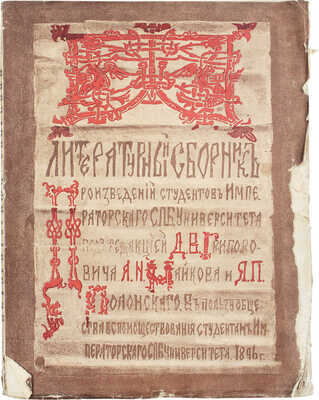 Литературный сборникъ
Произведенiй студентовъ Импе
раторскаго СПБ Университета
подъ редакцiей Д.В. Григоро
вича А.Н. Майкова и Я.П.
Полонскаго. Въ пользу обще
ства вспомоществованiя студентамъ Им
ператорскаго СПБ Университета. 1896 г.